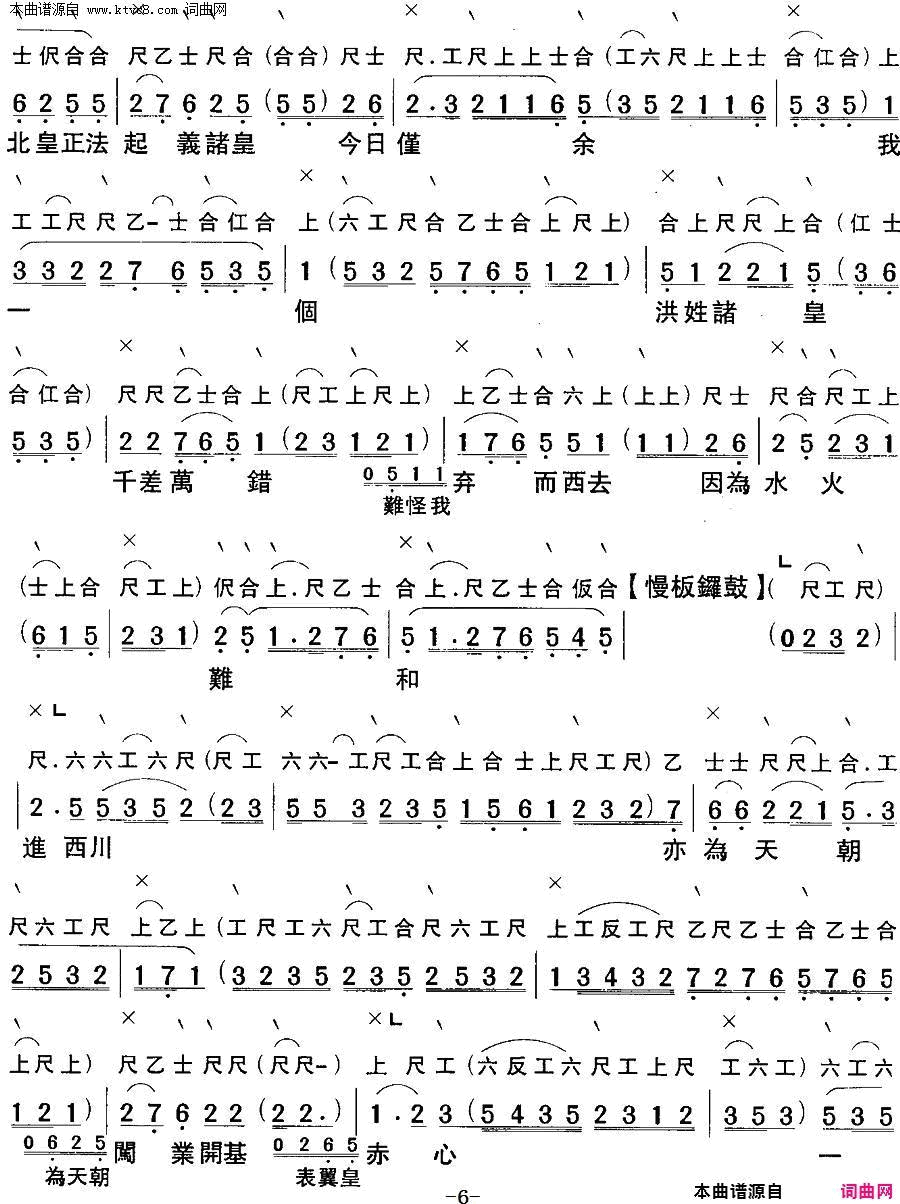 本曲谱源自 www.ktvc8.com 词曲网
士伬合合 尺乙士尺合(合合)尺士 尺.工尺上上士合(工六尺上上士 合仜合)上
6 2 5 5 | 2 7 6 2 5 (5 5) 2 6 | 2.3 2 1 1 6 5 (3 5 2 1 1 6 | 5 3 5) 1
北皇正法起 義諸皇 今日僅 余 我
工工尺尺乙-士合仜合 上(六工尺合乙士合上尺上) 合上尺尺上合(仜士
3 3 2 2 7 6 5 3 5 | 1 (5 3 2 5 7 6 5 1 2 1) | 5 1 2 2 1 5 (3 6
一 個 洪姓諸 皇
合仜合) 尺尺乙士合上(尺工上尺上) 上乙士合六上(上上)尺士 尺合尺工上
5 3 5) | 2 2 7 6 5 1 (2 3 1 2 1) | 1 7 6 5 5 1 (1 1) 2 6 | 2 5 2 3 1
千差萬 錯 0 5 1 1 弃 而西去 因為水 火
難怪我
(士上合 尺工上)伬合上.尺乙士 合上.尺乙士合仮合【慢板鑼鼓】( 尺工尺)
(6 1 5 | 2 3 1) 2 5 1.2 7 6 | 5 1.2 7 6 5 4 5 | (0 2 3 2) |
難 和
尺.六六工六尺(尺工 六六-工尺工合上合士上尺工尺)乙 士士尺尺上合.工
| 2.5 5 3 5 2 (2 3 | 5 5 3 2 3 5 1 5 6 1 2 3 2) 7 | 6 6 2 2 1 5.3
進西川 亦為天 朝
尺六工尺 上乙上(工尺工六尺工合尺六工尺 上工反工尺乙尺乙士合乙士合
2 5 3 2 | 1 7 1 (3 2 3 5 2 3 5 2 5 3 2 | 1 3 4 3 2 7 2 7 6 5 7 6 5
上尺上) 尺乙士尺尺(尺尺-) 上尺工(六反工六尺工上尺 工六工)六工六
1 2 1) | 2 7 6 2 2 (2 2.) | 1.2 3 (5 4 3 5 2 3 1 2 | 3 5 3) 5 3 5
0 6 2 5 闖 業開基 0 2 6 5 赤 心 一
為天朝 表翼皇
-6-
本曲谱源自 词曲网